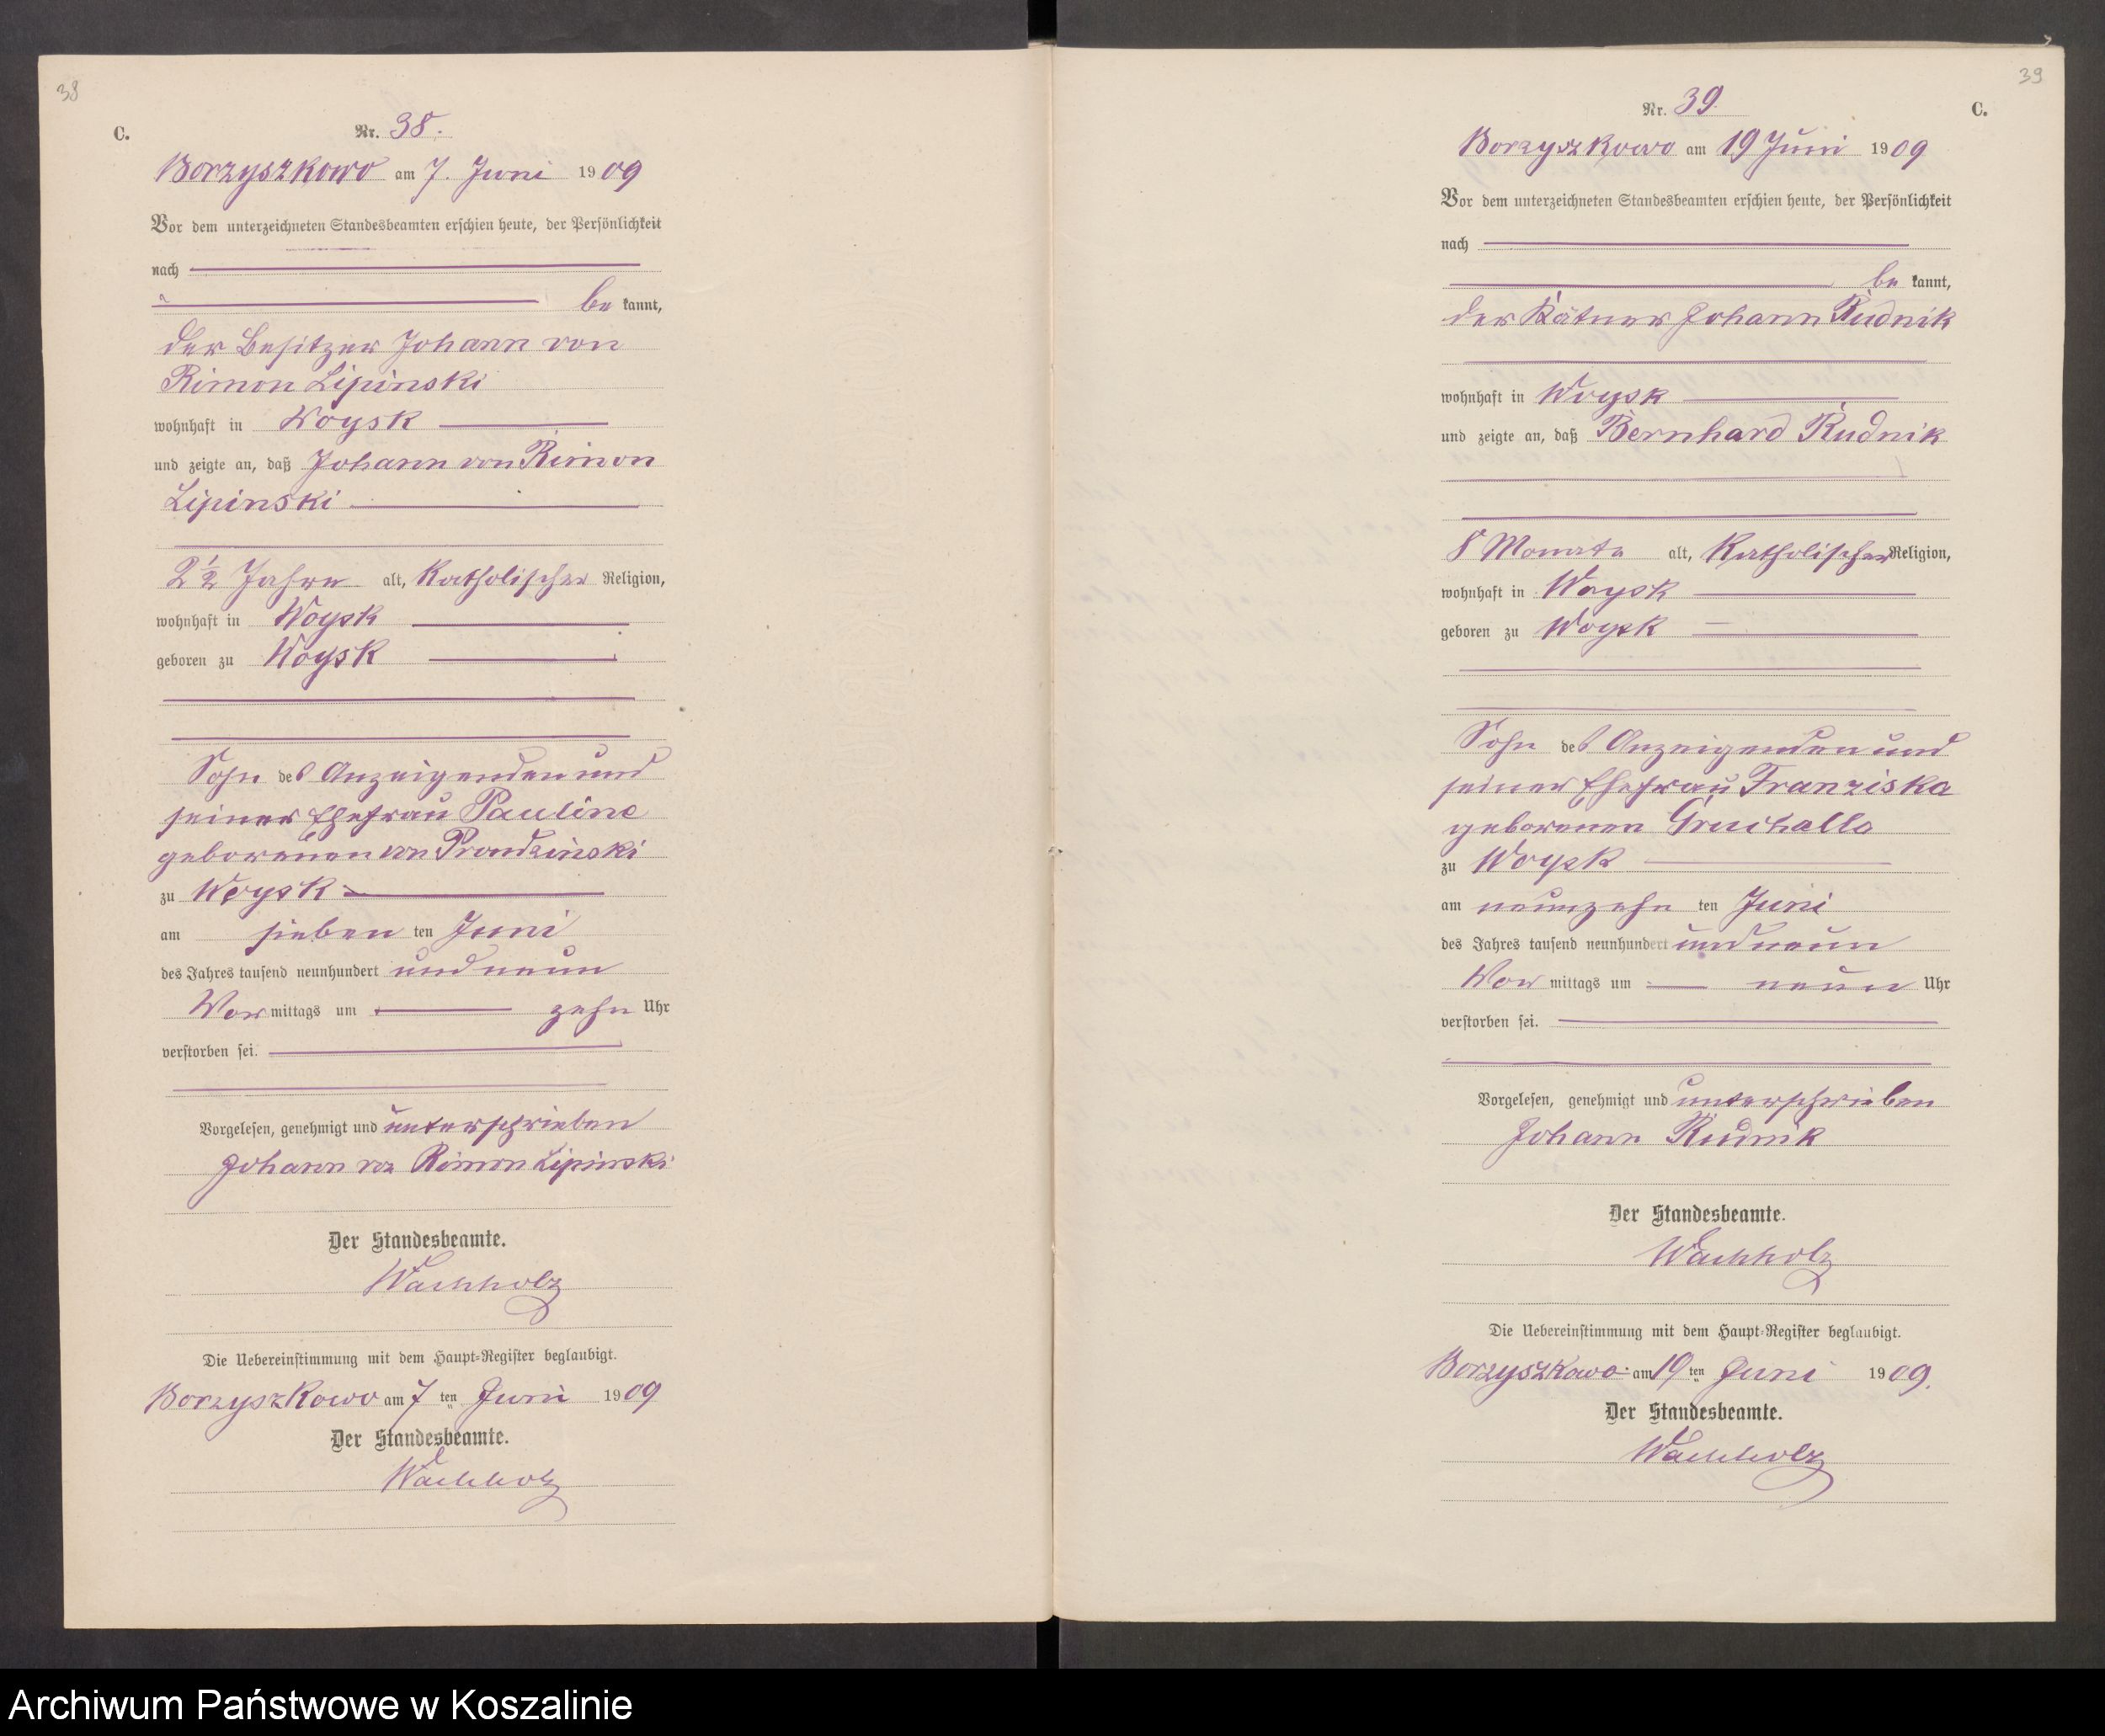 38
C.
Nr. 38.
Borzyszkowo am 7. Juni 1909
Vor dem unterzeichneten Standesbeamten erschien heute, der Persönlichkeit
nach
be kannt,
der Besitzer Johann von
Rimon Lipinski
wohnhaft in Woysk
und zeigte an, daß Johann von Rimon
Lipinski
2 1/2 Jahre alt, Katholischer Religion,
wohnhaft in Woysk
geboren zu Woysk
Sohn des Anzeigenden und
seiner Ehefrau Pauline
geborenen von Prondzinski
zu Woysk
am sieben ten Juni
des Jahres tausend neunhundert und neun
Vor mittags um zehn Uhr
verstorben sei.
Vorgelesen, genehmigt und unterschrieben
Johann von Rimon Lipinski
Der Standesbeamte.
Wachholz
Die Uebereinstimmung mit dem Haupt-Register beglaubigt.
Borzyszkowo am 7 ten Juni 1909
Der Standesbeamte.
Wachholz
39
C.
Nr. 39.
Borzyszkowo am 19 Juni 1909
Vor dem unterzeichneten Standesbeamten erschien heute, der Persönlichkeit
nach
be kannt,
der Kätner Johann Rudnik
wohnhaft in Woysk
und zeigte an, daß Bernhard Rudnik
8 Monate alt, Katholischer Religion,
wohnhaft in Woysk
geboren zu Woysk
Sohn des Anzeigenden und
seiner Ehefrau Franziska
geborenen Gruchalla
zu Woysk
am neunzehn ten Juni
des Jahres tausend neunhundert und neun
Vor mittags um neun Uhr
verstorben sei.
Vorgelesen, genehmigt und unterschrieben
Johann Rudnik
Der Standesbeamte.
Wachholz
Die Uebereinstimmung mit dem Haupt-Register beglaubigt.
Borzyszkowo am 19 ten Juni 1909.
Der Standesbeamte.
Wachholz
Archiwum Państwowe w Koszalinie